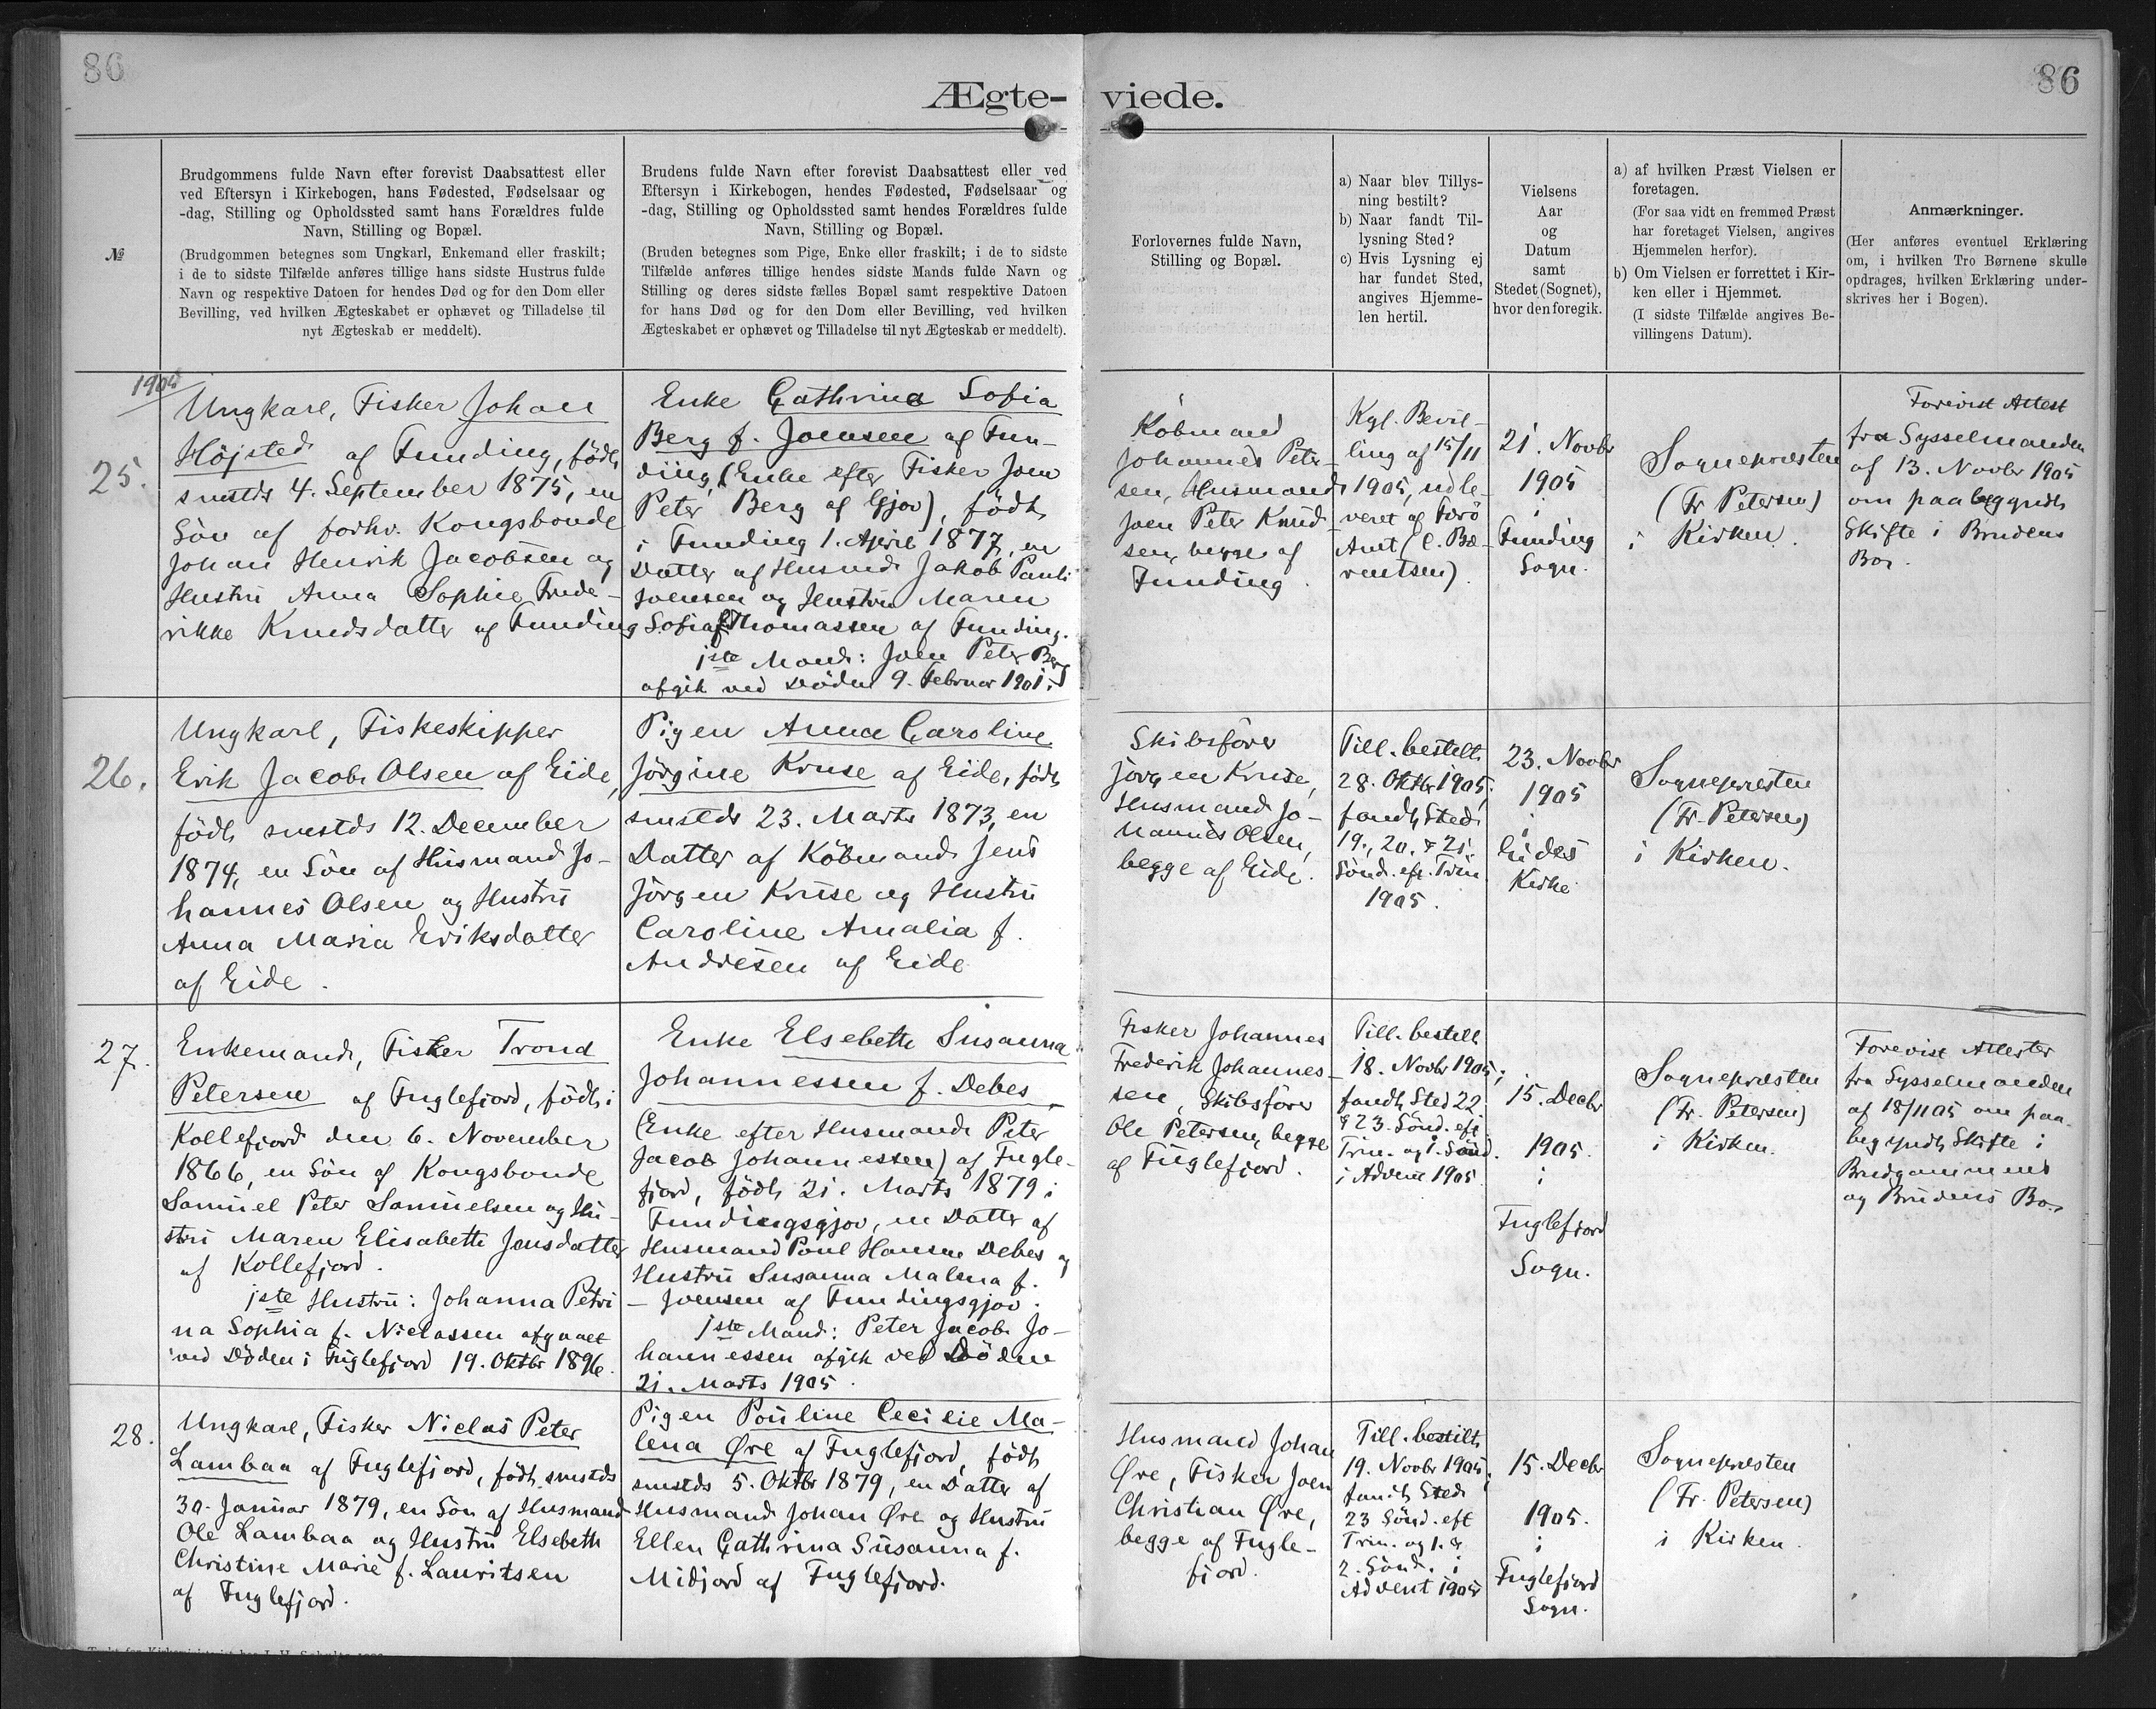 86
86
Ægte-
viede.
№
Brudgommens fulde Navn efter forevist Daabsattest eller
ved Eftersyn i Kirkebogen, hans Fødested, Fødselsaar og
-dag, Stilling og Opholdssted samt hans Forældres fulde
Navn, Stilling og Bopæl.
(Brudgommen betegnes som Ungkarl, Enkemand eller fraskilt;
i de to sidste Tilfælde anføres tillige hans sidste Hustrus fulde
Navn og respektive Datoen for hendes Død og for den Dom eller
Bevilling, ved hvilken Ægteskabet er ophævet og Tilladelse til
nyt Ægteskab er meddelt).
Brudens fulde Navn efter forevist Daabsattest eller ved
Eftersyn i Kirkebogen, hendes Fødested, Fødselsaar og
-dag, Stilling og Opholdssted samt hendes Forældres fulde
Navn, Stilling og Bopæl.
(Bruden betegnes som Pige, Enke eller fraskilt; i de to sidste
Tilfælde anføres tillige hendes sidste Mands fulde Navn og
Stilling og deres sidste fælles Bopæl samt respektive Datoen
for hans Død og for den Dom eller Bevilling, ved hvilken
Ægteskabet er ophævet og Tilladelse til nyt Ægteskab er meddelt).
Forlovernes fulde Navn,
Stilling og Bopæl.
a) Naar blev Tillys-
ning bestilt?
b) Naar fandt Til-
lysning Sted?
c) Hvis Lysning ej
har fundet Sted,
angives Hjemme-
len hertil.
Vielsens
Aar
og
Datum
samt
Stedet (Sognet),
hvor den foregik.
a) af hvilken Præst Vielsen er
foretagen.
(For saa vidt en fremmed Præst
har foretaget Vielsen, angives
Hjemmelen herfor).
b) Om Vielsen er forrettet i Kir-
ken eller i Hjemmet.
(I sidste Tilfælde angives Be-
villingens Datum).
Anmærkninger.
(Her anføres eventuel Erklæring
om, i hvilken Tro Børnene skulle
opdrages, hvilken Erklæring under-
skrives her i Bogen).
1905
25.
Ungkarl, Fisker Johan
Højsted af Funding, født
smstds 4. September 1875, en
Søn af forhv. Kongsbonde
Johan Henrik Jacobsen og
Hustru Anna Sophie Frede-
rikke Knudsdatter af Funding
Enke Cathrina Sofia
Berg f. Joensen af Fun-
ding, (Enke efter Fisker Joen
Peter Berg af Gjov), født
i Funding 1. April 1877, en
Datter af Husmd. Jakob Pauli
Joensen og Hustru Maren
Sofia f. Thomassen af Funding.
1ste Mand: Joen Peter Berg
afgik ved Døden 9. Februar 1901.
Købmand
Johannes Peter-
sen, Husmand
Joen Peter Knud-
sen, begge af
Funding.
Kgl. Bevil-
ling af 15/11
1905, udle-
veret af Færø
Amt (C. Bæ-
rentsen).
21. Novbr
1905
i
Funding
Sogn.
Sognepræsten
(Fr Petersen)
i Kirken.
Forevist Attest
fra Sysselmanden
af 13. Novbr 1905
om paabegyndt
Skifte i Brudens
Bo.
26.
Ungkarl, Fiskeskipper
Erik Jacob Olsen af Eide,
født smstds 12. December
1874, en Søn af Husmand Jo-
hannes Olsen og Hustru
Anna Maria Eriksdatter
af Eide.
Pigen Anna Caroline
Jørgine Kruse af Eide, født
smstds 23. Marts 1873, en
Datter af Købmand Jens
Jørgen Kruse og Hustru
Caroline Amalia f.
Andresen af Eide
Skibsfører
Jørgen Kruse,
Husmand Jo-
hannes Olsen,
begge af Eide.
Till. bestilt
28. Oktbr 1905;
fandt Sted
19., 20. & 21.
Sønd. eft. Trin
1905.
23. Novbr
1905
i
Eides
Kirke
Sognepræsten
(Fr. Petersen)
i Kirken.
27.
Enkemand, Fisker Trond
Petersen af Fuglefjord, født i
Kollefjord den 6. November
1866, en Søn af Kongsbonde
Samuel Peter Samuelsen og Hu-
stru Maren Elisabeth Jensdatter
af Kollefjord.
1ste Hustru: Johanna Petri-
na Sophia f. Niclassen afgaaet
ved Døden i Fuglefjord 19. Oktbr 1896.
Enke Elsebeth Susanna
Johannessen f. Debes,
(Enke efter Husmand Peter
Jacob Johannessen) af Fugle-
fjord, født 21. Marts 1879 i
Fundingsgjov, en Datter af
Husmand Poul Hansen Debes og
Hustru Susanna Malena f.
Joensen af Fundingsgjov.
1ste Mand: Peter Jacob Jo-
hannessen afgik ved Døden
21. Marts 1905.
Fisker Johannes
Frederik Johannes-
sen, Skibsfører
Ole Petersen, begge
af Fuglefjord.
Till. bestilt
18. Novbr 1905;
fandt Sted 22.
& 23. Sønd. eft.
Trin. og 1. Sønd.
i Advent 1905
15. Decbr
1905.
i
Fuglefjord
Sogn.
Sognepræsten
(Fr. Petersen)
i Kirken.
Forevist Attester
fra Sysselmanden
af 18/11 05 om paa-
begyndt Skifte i
Brudgommens
og Brudens Bo.
28.
Ungkarl, Fisker Niclas Peter
Lambaa af Fuglefjord, født smstds
30. Januar 1879, en Søn af Husmand
Ole Lambaa og Hustru Elsebeth
Christine Marie f. Lauritsen
af Fuglefjord.
Pigen Pouline Cecilie Ma-
lena Øre af Fuglefjord, født
smstds 5. Oktbr 1879, en Datter af
Husmand Johan Øre og Hustru
Ellen Cathrina Susanna f.
Midjord af Fuglefjord.
Husmand Johan
Øre, Fisker Joen
Christian Øre,
begge af Fugle-
fjord.
Till. bestilt
19. Novbr 1905;
fandt Sted
23 Sønd. eft
Trin. og 1. &
2. Sønd. i
Advent 1905
15. Decbr
1905.
i
Fuglefjord
Sogn.
Sognepræsten
(Fr. Petersen)
i Kirken.